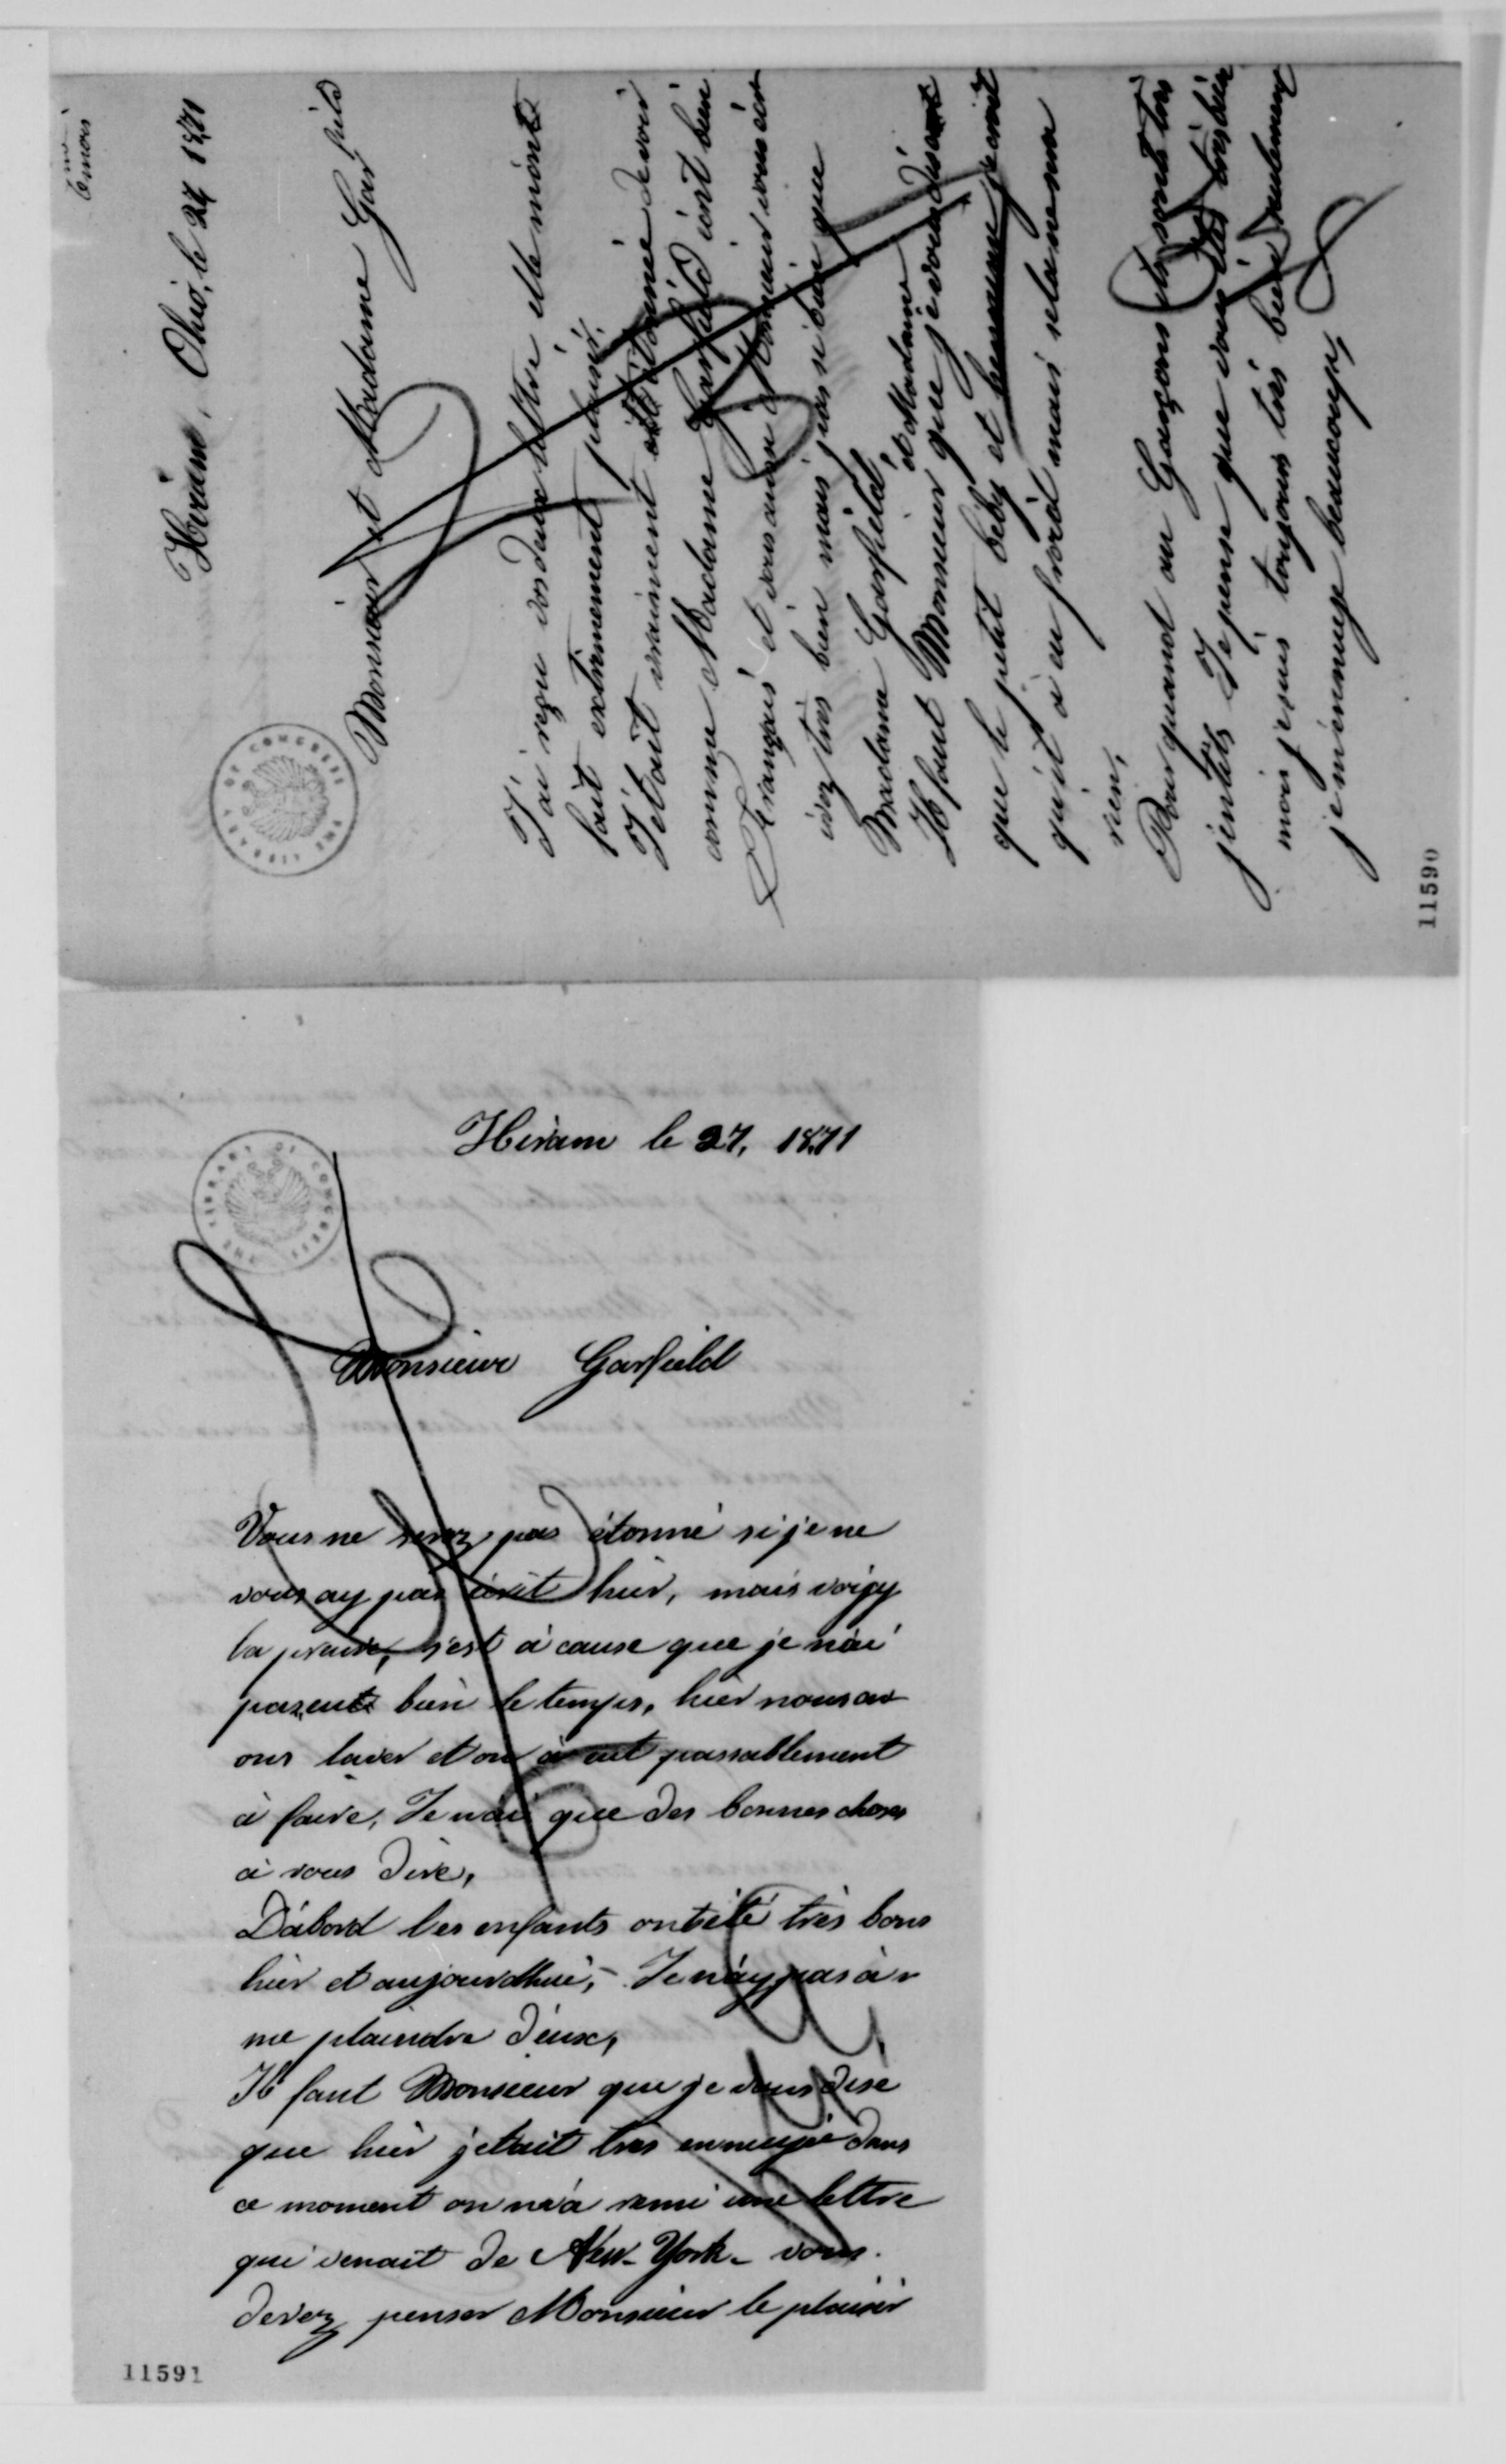 Hiram, Ohio, le 27 1871
Monsieur et Madame Garfield
J'ai reçu vos deux lettre elle mònt
fait extrèmement plaisir,
J'etait vraiment étonné de voir
comme Madame Garfield ècrit bien
Français et vous aussi Monsieur vous écri
vez très bien mais pas si bien que
Madame Garfield,
et Madame
Il faut Monsieur que je vous dise
que le petit béby
qu'il à eu froid mais sela ne na
rien,
Pour quand au Garçons ils sont très
jentils Je pense que vous êtes très bien
moi je suis toujours très bien seulement
je m'ennuye beaucoup,
11590
Hiram le 27, 1871
Monsieur Garfield
Vous ne serez pas étonné si je ne
vous ay pas écrit hier, mais voiçy
la preuve, s'est à cause que je n'ai
pas eut bien le temps, hier nous av
ons laver et on à eut passablement
à faire, Je n'ai que des bonnes choses
à vous dire,
D'abord les enfants ont été très bons
hier et aujourdhui, - Je n'ay pas à
me plaindre d'eux,
Il faut Monsieur que je vous dise
que hier j'etait très ennuyé dans
ce moment on m'à remi une lettre
qui venait de New-York - vous
devez penser Monsieur le plaisir
11591
THE LIBRARY OF CONGRESS
THE LIBRARY OF CONGRESS